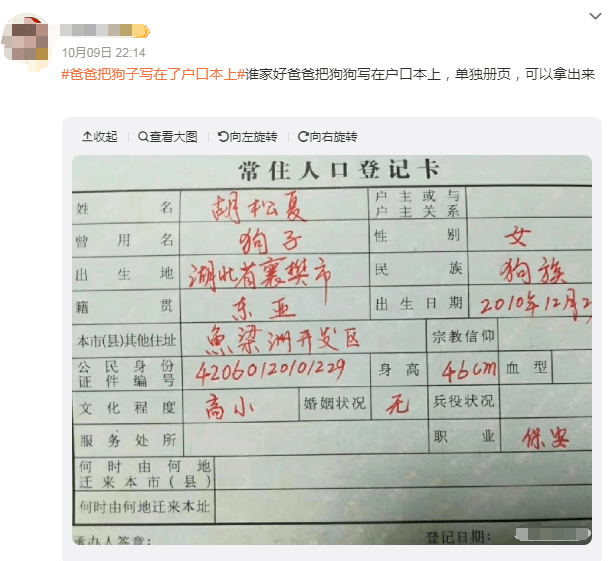 10月09日 22:14
#爸爸把狗子写在了户口本上#谁家好爸爸把狗狗写在户口本上，单独册页，可以拿出来
收起 查看大图 向左旋转 向右旋转
常住人口登记卡
姓名 胡松夏 户主或与户主关系
曾用名 狗子 性别 女
出生地 湖北省襄樊市 民族 狗族
籍贯 东亚 出生日期 2010年12月2
本市(县)其他住址 鱼梁洲开发区 宗教信仰
公民身份证件编号 42060120101229 身高 46cm 血型
文化程度 高小 婚姻状况 无 兵役状况
服务处所 职业 保安
何时由何地迁来本市(县)
何时由何地迁来本址
承办人签章： 登记日期：